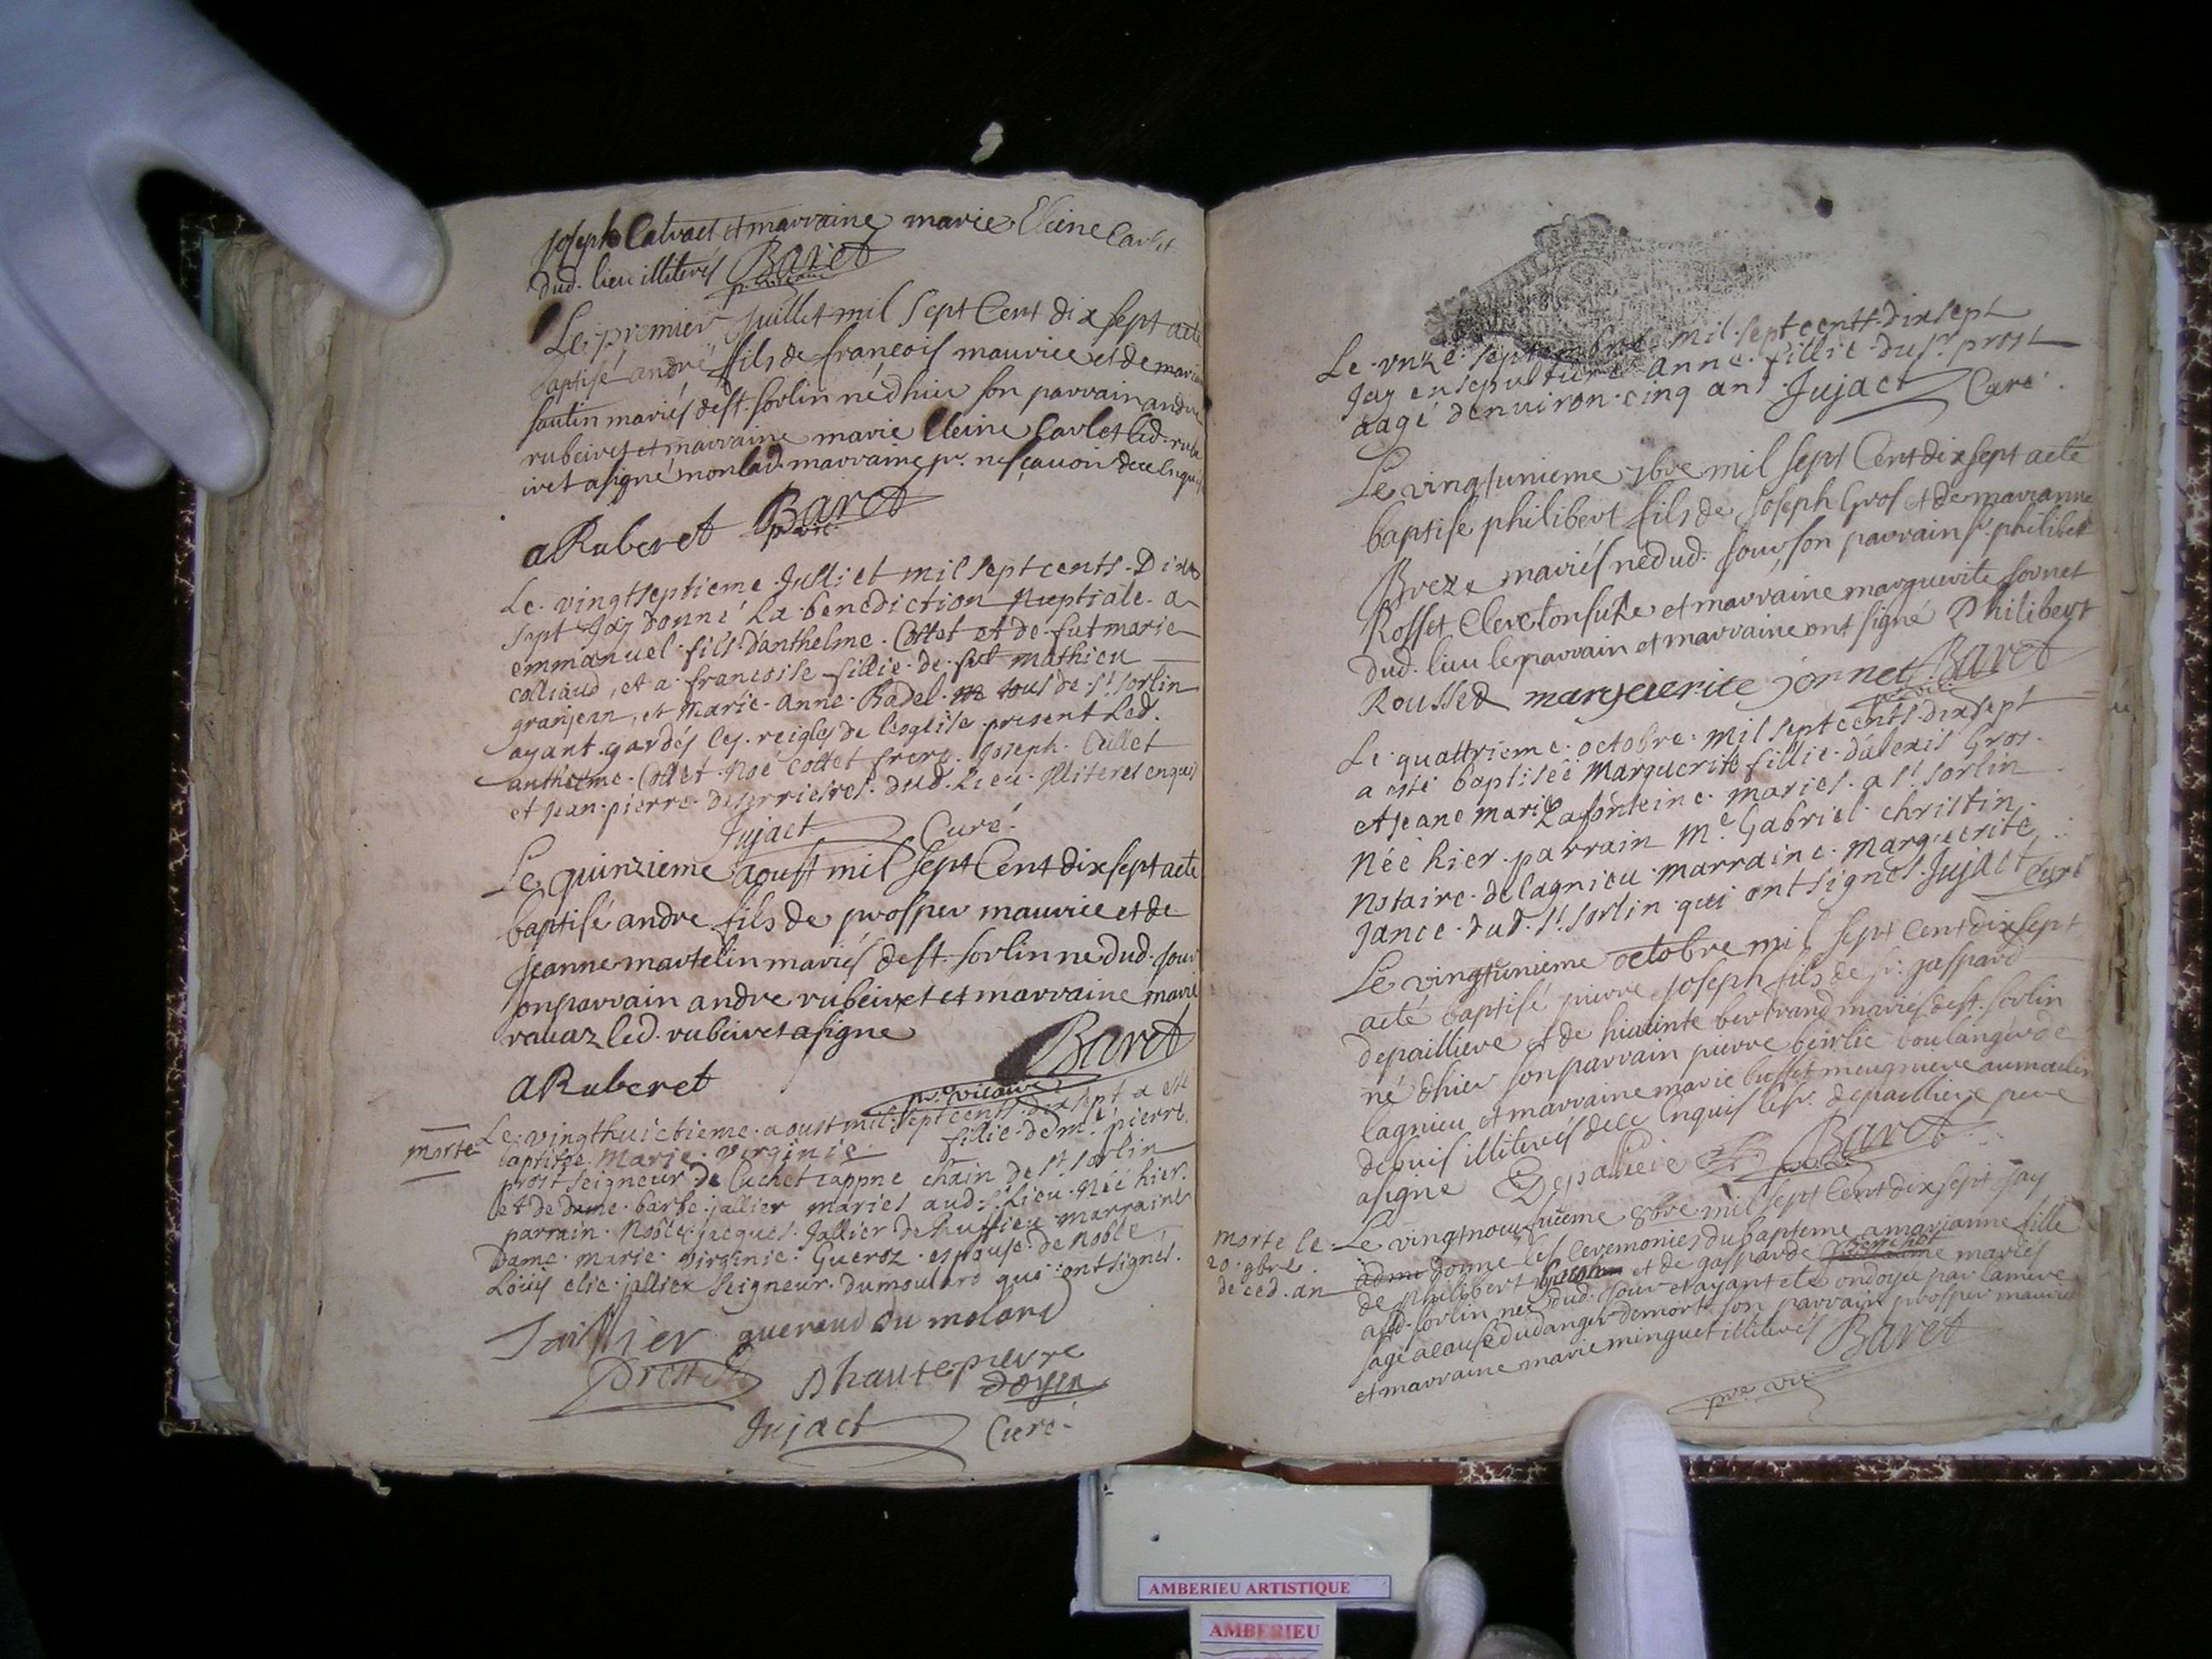 joseph Calvaet et marraine marie Cleine Carlet
dud. lieu illiterés Baret
p. vicaire
Le premier Juillet mil sept Cent dix sept aeté
baptisé andré fils de françois maurice et de marie
sautin mariés de st. sorlin né d'hier son parrain andre
rubeiret et marraine marie Cleine Carlet led. rube
iret a signé non lad. marraine pr. ne sçavoir de ce enquis
aRuberet Baret
p. vic.
Le vingtseptieme Julliet mil sept cents Dix
sept Jay donné La benediction Nuptiale a
emmanuel fils d'anthelme Cottet et de fut marie
colliaud, et a francoise fillie de fut mathieu
granjean, et Marie Anne Radel tous de st. sorlin
ayant gardés les reigles de lesglise present Led.
anthelme Cottet Noé cottet frere Joseph Cullet
et jean pierre deserrieres dud. Lieu Illiteres enquis
Jujact Curé
Le quinzieme aoust mil sept Cent dix sept aeté
baptisé andre fils de prosper maurice et de
jeanne martelin mariés de st. sorlin ne dud. jour
son parrain andre rubeiret et marraine marie
ravaz led. rubeiret a signe
Baret
aRuberet
pr. vicaire
morte
Le vingthuictieme aoust mil sept cents dix sept a esté
baptisee Marie Virginie fillie de me. pierre
prost seigneur de Cuchet cappne chain de st sorlin
et de dame barbe jallier mariés aud. Lieu Née hier
parrain Noble jacques Jallier de huffieu marraine
Dame Marie Virginie Gueroz espouse de Noble
Loüis elie jallier seigneur dumoulard qui ont signés
Jaillier gueraud du molard
Prost Dhautepierre
doyen
Jujact Curé
Le unze septembre mil sept cents dix sept
Jay ensepulturé anne fillie du sr. prost
aagé denuiron cinq ans Jujact Curé
Le vingtunieme 7bre mil sept Cent dix sept aeté
baptise philibert fils de joseph Gros et de marianne
Breze mariés né dud. jour son parrain sr. philibert
Rosset Clerc tonsuré et marraine marguerite sornet
dud. lieu le parrain et marraine ont signé Philibert
Rousset marguerite jornet Baret
Le quattrieme octobre mil sept cents dix sept
a esté baptisée Marguerite fillie d'alexis Gros
et jeane marie Lafonteine mariés a st sorlin
Née hier parrain Me Gabriel christin
Notaire de lagnieu marraine Marguerite
Jance dud. st. sorlin qui ont signés Jujact Curé
Le vingtunieme octobre mil sept Cent dix sept
aeté baptisé pierre joseph fils de sr. gaspard
depailliere et de hiacinte bertrand mariés de st. sorlin
né dhier son parrain pierre beirlie boulanger de
lagnieu et marraine marie busset meugniere au moulin
depuis illiterés de ce Enquis le sr. depailliere pere
a signe Depaliere Baret
morte le
20 9bre
de ced. an
Le vingtneuf vieme 8bre mil sept Cent dix sept Jay
donné les Ceremonies du bapteme a marianne fille
de philibert et de gasparde mariés
a st. sorlin née dud. jour et ayant eté ondoyée par la mere
sage a cause du danger de mort son parrain prosper maurice
et marraine marie minguet illiterés Baret
pre vic.
AMBERIEU ARTISTIQUE
AMBERIEU